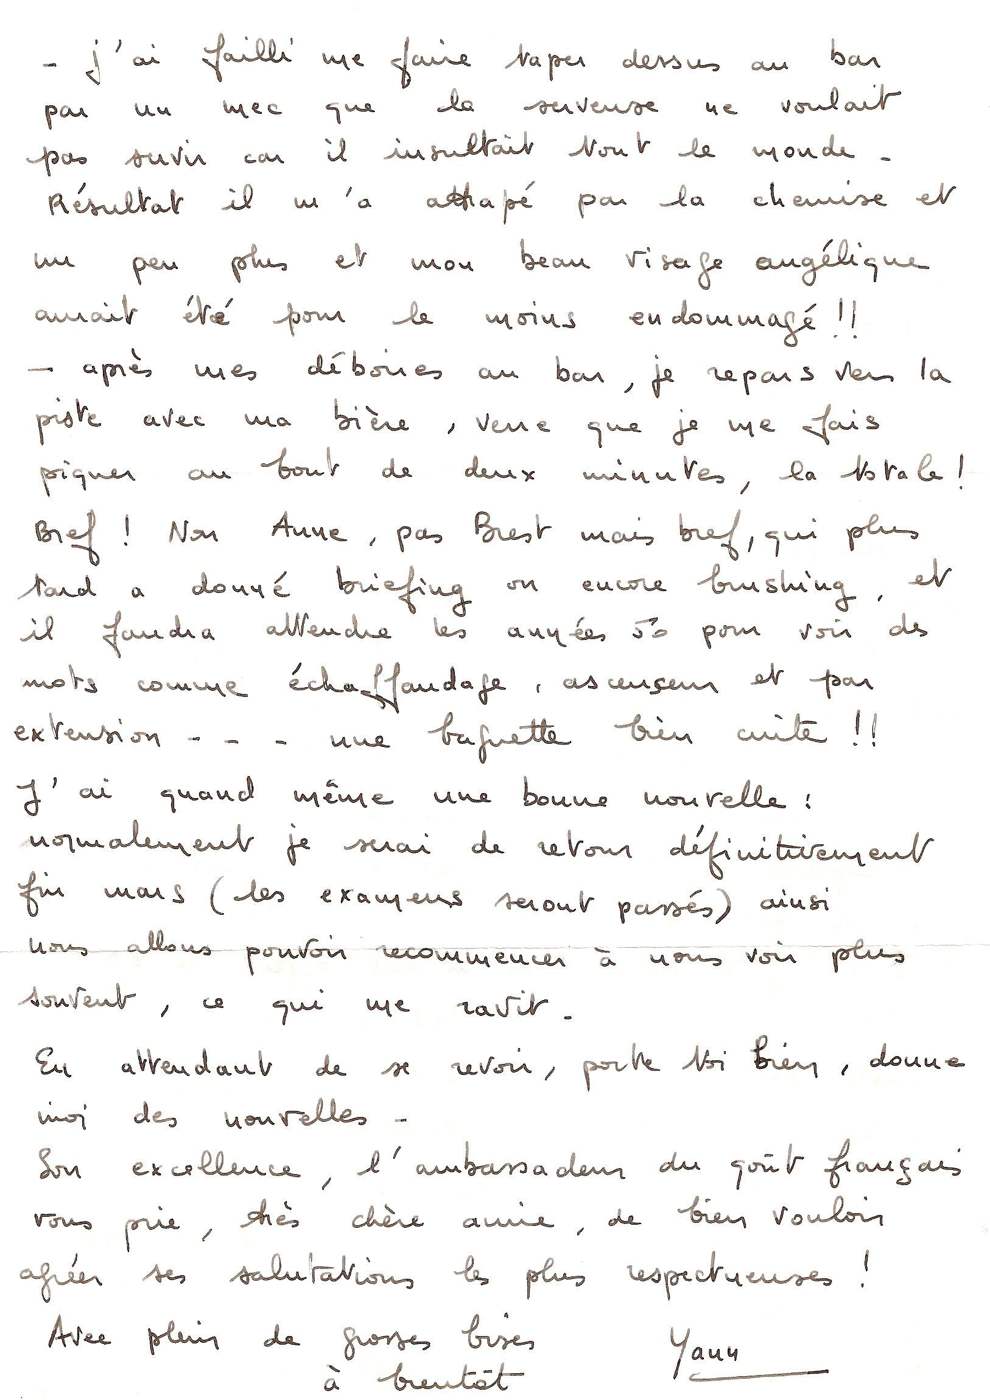 - j'ai failli me faire taper dessus au bar
par un mec que la serveuse ne voulait
pas servir car il insultait tout le monde -
Résultat il m'a attrapé par la chemise et
un peu plus et mon beau visage angélique
aurait été pour le moins endommagé !!
- après mes déboires au bar, je repars vers la
piste avec ma bière, verre que je me fais
piquer au bout de deux minutes, la totale !
Bref ! Non Anne, pas Brest mais bref, qui plus
tard a donné briefing ou encore brushing, et
il faudra attendre les années 50 pour voir des
mots comme échaffaudage, ascenseur et par
extension - - - une baguette bien cuite !!
J'ai quand même une bonne nouvelle :
normalement je serai de retour définitivement
fin mars (les examens seront passés) ainsi
nous allons pouvoir recommencer à nous voir plus
souvent, ce qui me ravit -
En attendant de se revoir, porte toi bien, donne
moi des nouvelles -
Son excellence, l'ambassadeur du goût français
vous prie, très chère amie, de bien vouloir
agréer ses salutations les plus respectueuses !
Avec plein de grosses bises
Yann
à bientôt